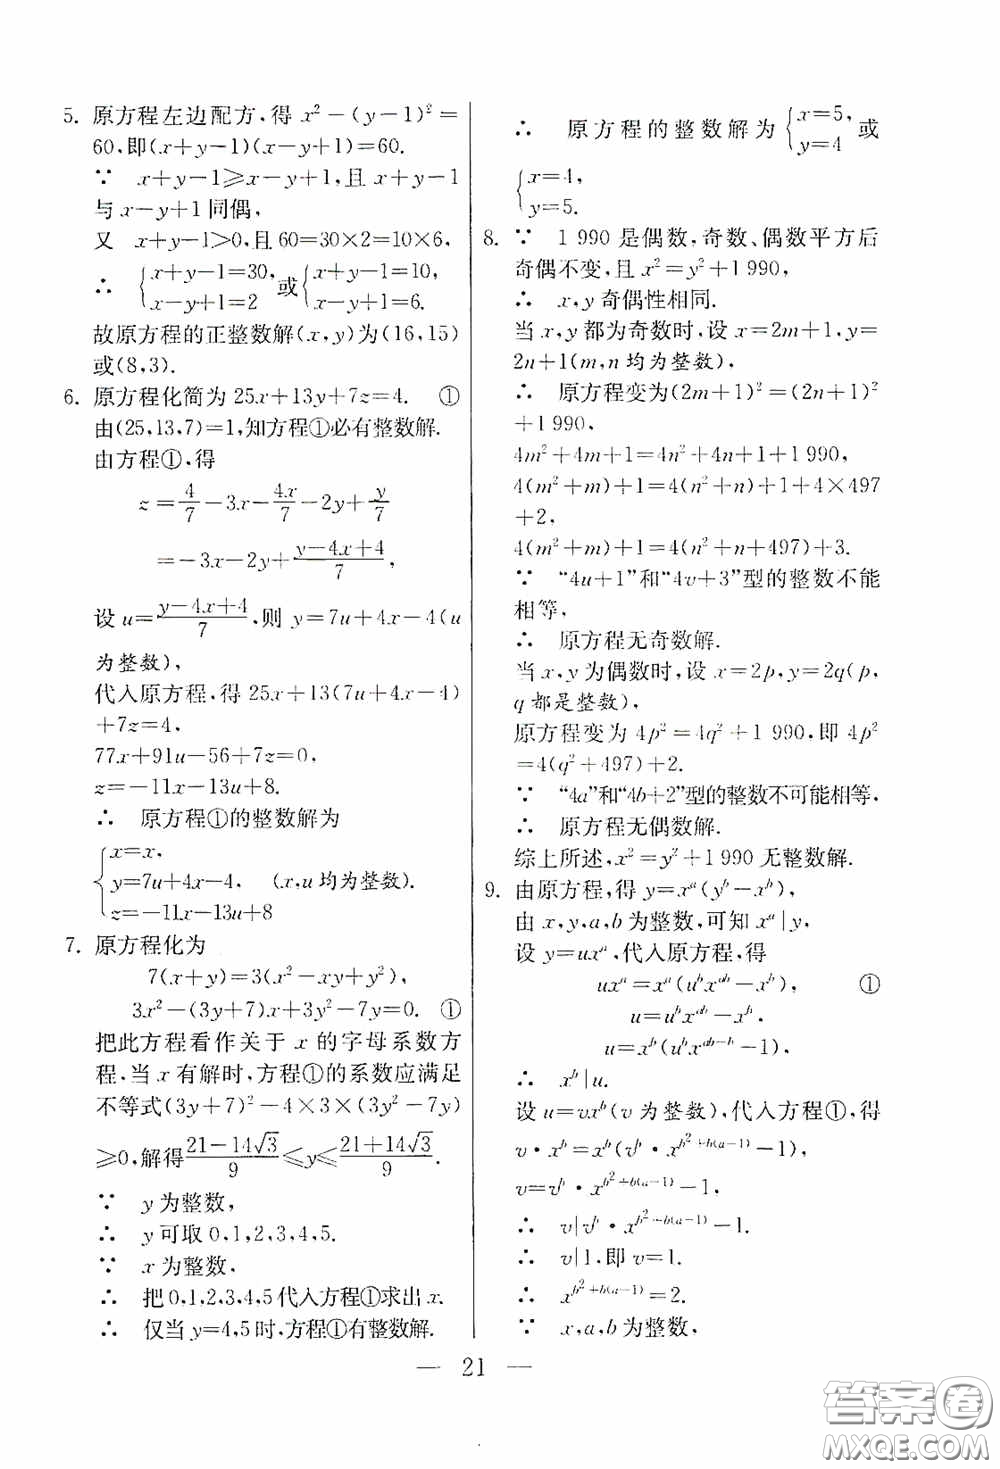 5. 原方程左边配方,得 x²-(y-1)²=
60,即(x+y-1)(x-y+1)=60.
∵ x+y-1≥x-y+1,且 x+y-1
与 x-y+1 同偶,
又 x+y-1>0,且 60=30×2=10×6,
∴ {x+y-1=30, x-y+1=2 或 {x+y-1=10, x-y+1=6.
故原方程的正整数解(x,y)为(16,15)
或(8,3).
6. 原方程化简为 25x+13y+7z=4. ①
由(25,13,7)=1,知方程①必有整数解.
由方程①,得
z=4/7-3x-4x/7-2y+y/7
=-3x-2y+(y-4x+4)/7,
设 u=(y-4x+4)/7,则 y=7u+4x-4(u
为整数),
代入原方程,得 25x+13(7u+4x-4)
+7z=4,
77x+91u-56+7z=0,
z=-11x-13u+8.
∴ 原方程①的整数解为
{x=x,
y=7u+4x-4, (x,u 均为整数).
z=-11x-13u+8
7. 原方程化为
7(x+y)=3(x²-xy+y²),
3x²-(3y+7)x+3y²-7y=0. ①
把此方程看作关于 x 的字母系数方
程,当 x 有解时,方程①的系数应满足
不等式(3y+7)²-4×3×(3y²-7y)
≥0,解得(21-14√3)/9≤y≤(21+14√3)/9.
∵ y 为整数,
∴ y 可取 0,1,2,3,4,5.
∵ x 为整数,
∴ 把 0,1,2,3,4,5 代入方程①求出 x.
∴ 仅当 y=4,5 时,方程①有整数解.
∴ 原方程的整数解为 {x=5, y=4 或
{x=4,
y=5.
8. ∵ 1 990 是偶数,奇数、偶数平方后
奇偶不变,且 x²=y²+1 990,
∴ x,y 奇偶性相同.
当 x,y 都为奇数时,设 x=2m+1,y=
2n+1(m,n 均为整数),
∴ 原方程变为(2m+1)²=(2n+1)²
+1 990,
4m²+4m+1=4n²+4n+1+1 990,
4(m²+m)+1=4(n²+n)+1+4×497
+2,
4(m²+m)+1=4(n²+n+497)+3.
∵ “4u+1”和“4v+3”型的整数不能
相等,
∴ 原方程无奇数解.
当 x,y 为偶数时,设 x=2p,y=2q(p,
q 都是整数),
原方程变为 4p²=4q²+1 990,即 4p²
=4(q²+497)+2.
∵ “4a”和“4b+2”型的整数不可能相等,
∴ 原方程无偶数解.
综上所述,x²=y²+1 990 无整数解.
9. 由原方程,得 y=x^a(y^b-x^b),
由 x,y,a,b 为整数,可知 x^a|y,
设 y=ux^a,代入原方程,得
ux^a=x^a(u^b x^ab-x^b), ①
u=u^b x^ab-x^b.
u=x^b(u^b x^(ab-b)-1),
∴ x^b|u.
设 u=vx^b(v 为整数),代入方程①,得
v·x^b=x^b(v^b·x^(b²+b(a-1))-1),
v=v^b·x^(b²+b(a-1))-1,
∴ v|v^b·x^(b²+b(a-1))-1.
∴ v|1,即 v=1.
∴ x^(b²+b(a-1))=2.
∵ x,a,b 为整数,
— 21 —
答案圈
MXQE.COM